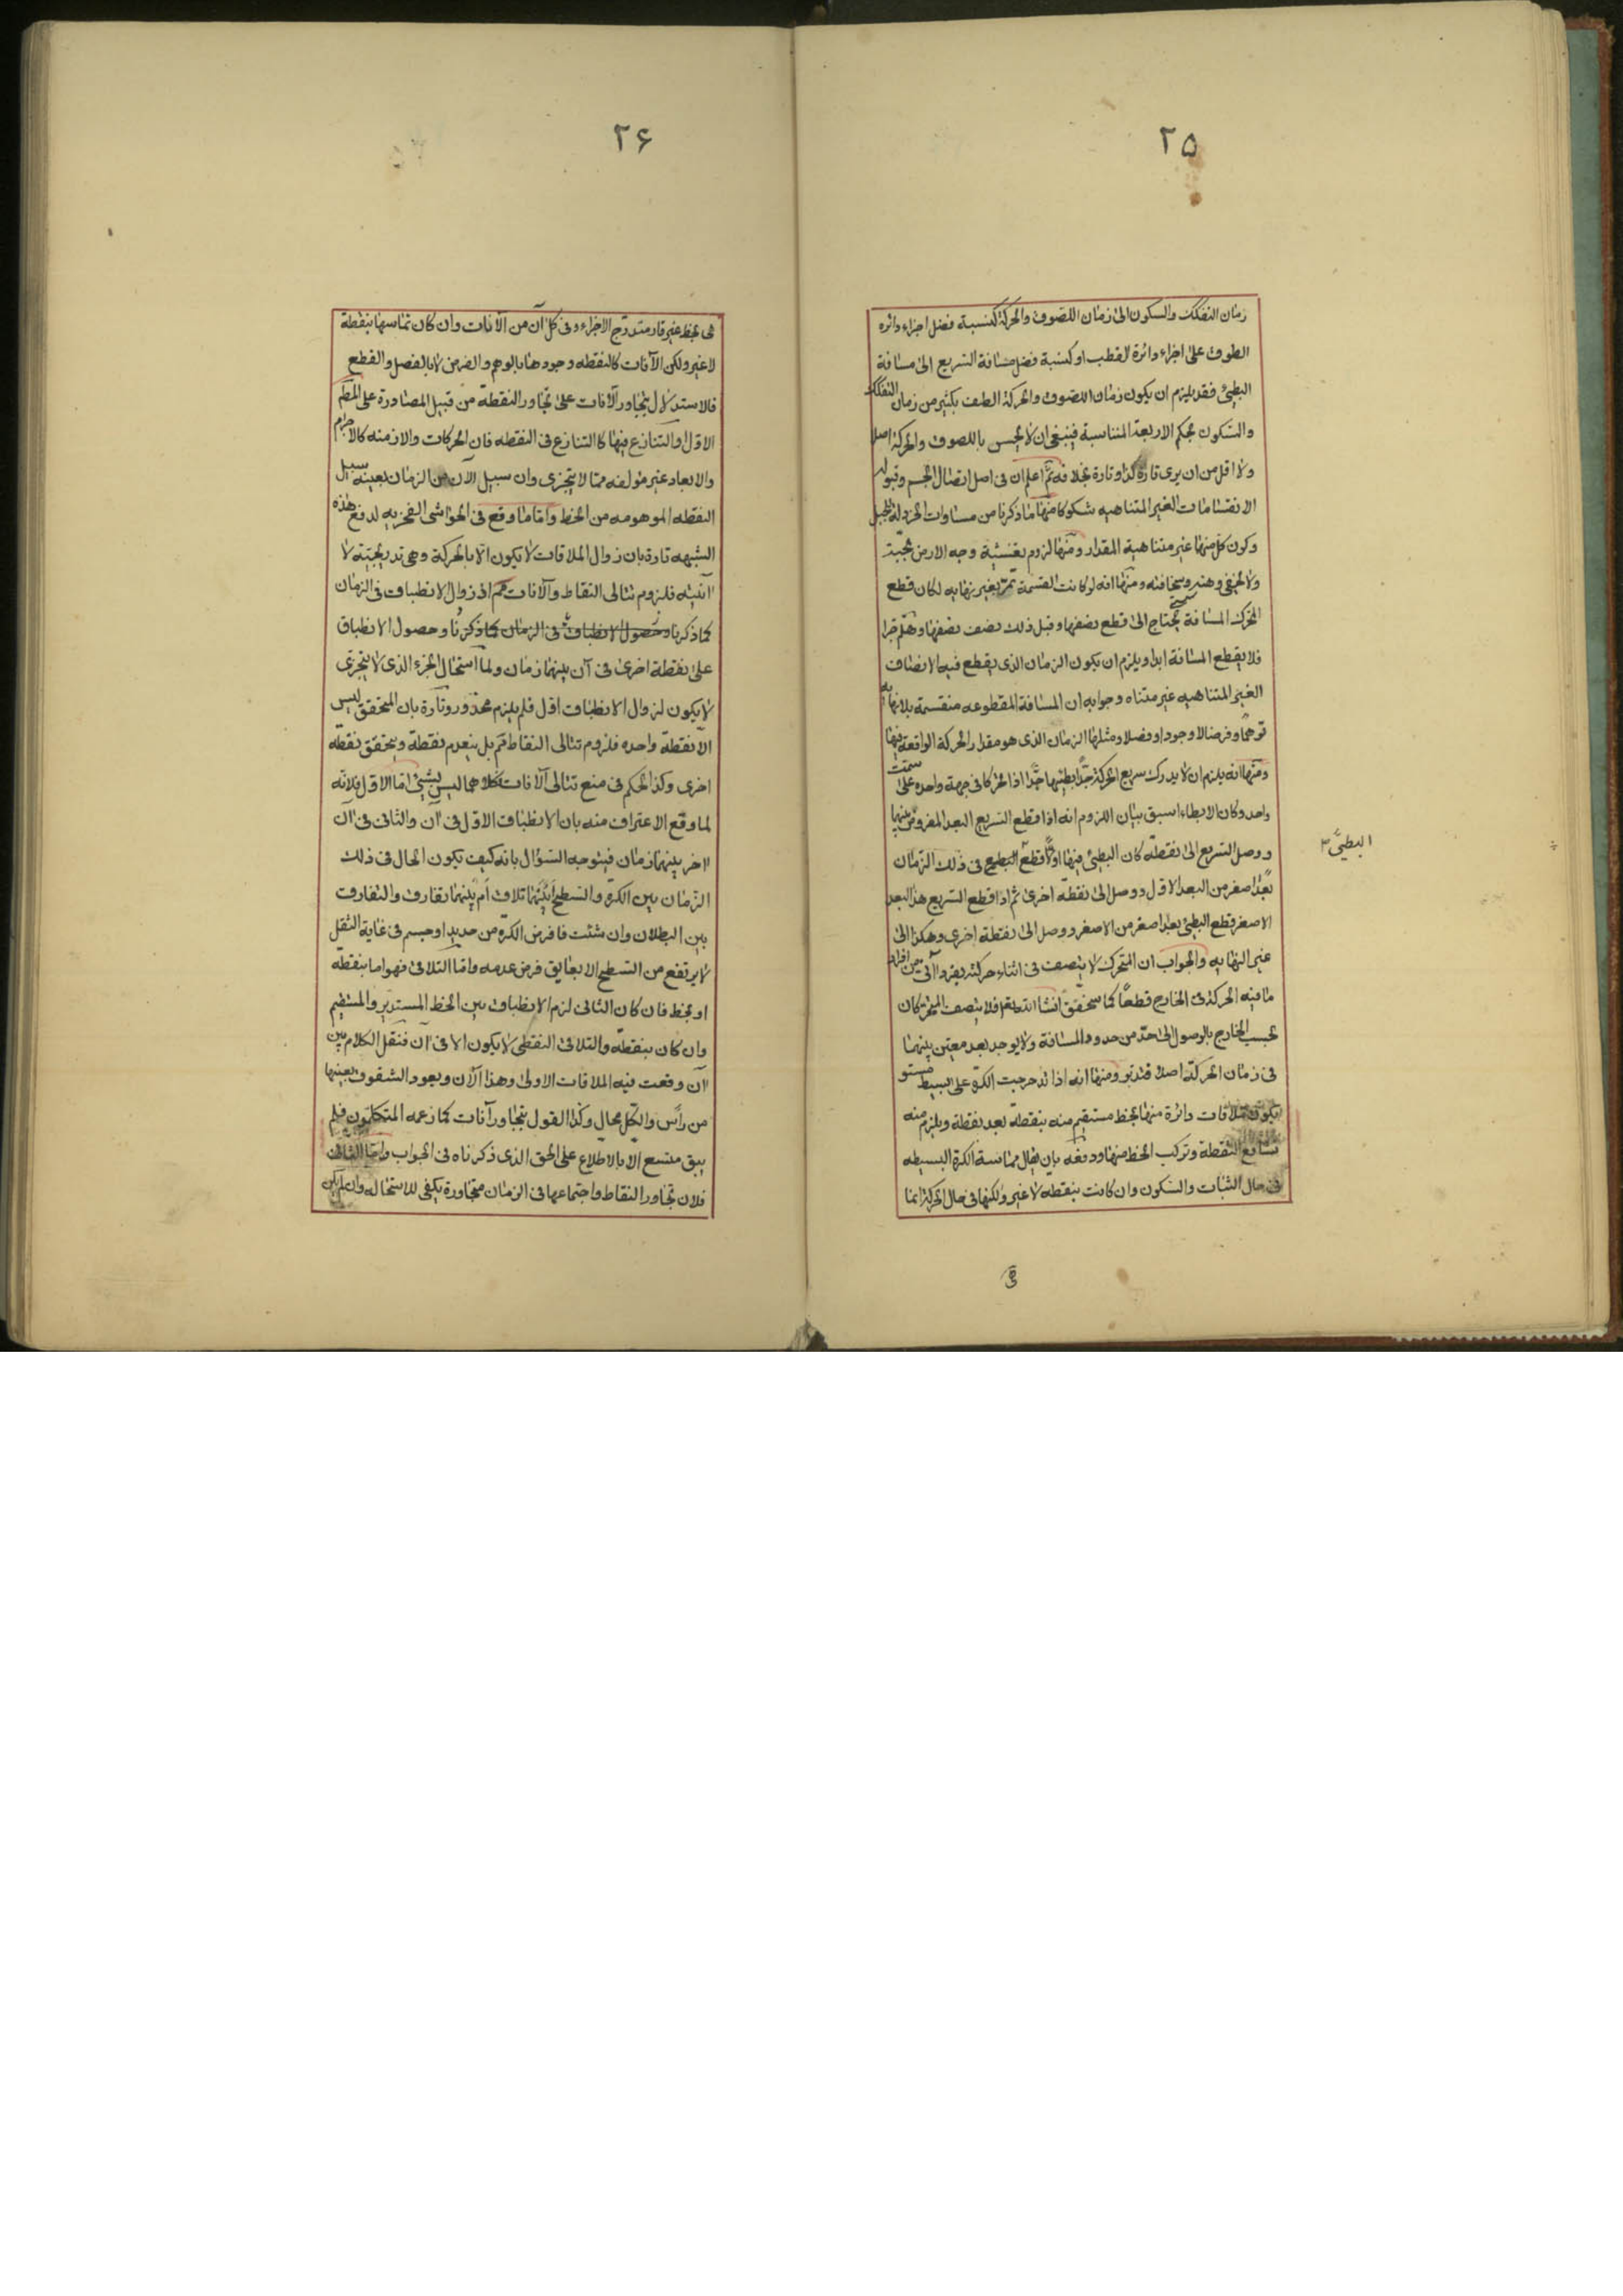 ٢٥
زمان التفكك والسكون الى زمان اللصوق والحركة كنسبة فضل اجزاء دائرة
الطوق على اجزاء دائرة القطب او كنسبة فضل مسافة السريع الى مسافة
البطيئ فقد يلزم ان يكون زمان اللصوق والحركة الطف بكثير من زمان التفكك
والسكون بحكم الاربعة المتناسبة فينبغى ان لا يحس باللصوق والحركة اصلا
ولا اقل من ان يرى تارة كذا وتارة بخلافه ثم اعلم ان فى اصل اتصال الجسم وقبوله
الانقسامات الغير المتناهيه شكوكا منها ما ذكرنا من مساوات الخردلة للجبل
وكون كل منها غير متناهية المقدار ومنها لزوم تغشية وجه الارض بحبة
ولا يخفى وهنه وسخافته ومنها انه لو كانت القسمة تمر بغير نهايه لكان قطع
المتحرك المسافة يحتاج الى قطع نصفها وقبل ذلك نصف نصفها وهلم جرا
فلا يقطع المسافة ابدا ويلزم ان يكون الزمان الذى يقطع فيه الانصاف
الغير المتناهيه غير متناه وجوابه ان المسافة المقطوعه منقسمة بلا نهايه
توهما وفرضا لا وجودا وفصلا ومثلها الزمان الذى هو مقدار الحركة الواقعة فيها
ومنها انه يلزم ان لا يدرك سريع الحركة جدا بطيئها جدا اذا تحركا فى جهة واحده على سمت
واحد وكان الابطاء اسبق بيان اللزوم انه اذا قطع السريع البعد المفروض بينهما
ووصل السريع الى نقطة كان البطيئ فيها اولا قطع البطيئ فى ذلك الزمان
بعدا اصغر من البعد الاول ووصل الى نقطة اخرى ثم اذا قطع السريع هذا البعد
الاصغر قطع البطيئ بعدا اصغر من الاصغر ووصل الى نقطة اخرى وهكذا الى
غير النهايه والجواب ان المتحرك لا يتصف فى اثناء حركته بفرد آنى من افراد
ما فيه الحركة فى الخارج قطعا كما سيحقق انشا الله فلا يتصف المتحركان
بحسب الخارج بالوصول الى حد من حدود المسافة ولا يوجد بعد معين بينهما
فى زمان الحركة اصلا فتدبر ومنها انه اذا تدحرجت الكرة على البسيط مستو
يكون ملاقات دائرة منها بخط مستقيم منه بنقطة بعد نقطة ويلزم منه
تشافع النقطة وتركب الخط منها ودفعه بان يقال مماسة الكرة البسيطه
فى حال الثبات والسكون وان كانت بنقطه لا غير ولكنها فى حال الحركة انما
البطيئ ٣
٢۶
هى بخط غير قار متدرج الاجزاء وفى كل آن من الآنات وان كان تماسها بنقطة
لا غير ولكن الآنات كالنقطه وجودها بالوهم والفرض لا بالفصل والقطع
فالاستدلال بتجاور الآنات على تجاور النقطة من قبيل المصادرة على المط
الاول والتنازع فيها كالتنازع فى النقطه فان الحركات والازمنه كالاجرام
والابعاد غير مؤلفه مما لا يتجزى وان سبيل الآن من الزمان بعينه سبيل
النقطه الموهومه من الخط واما ما وقع فى الحواشى الفخريه لدفع هذه
الشبهه تارة بان زوال الملاقات لا يكون الا بالحركة وهى تدريجية لا
آنيه فلزوم تتالى النقاط والآنات مم اذ زوال الانطباق فى الزمان
كما ذكرنا وحصول الانطباق فى الزمان كما ذكرنا وحصول الانطباق
على نقطة اخرى فى آن بينهما زمان ولما استحال الجزء الذى لا يتجزى
لا يكون لزوال الانطباق اول فلم يلزم محذور وتارة بان المتحقق ليس
الا نقطة واحده فلزوم تتالى النقاط مم بل ينعدم نقطة ويتحقق نقطه
اخرى وكذا الحكم فى منع تتالى الآنات فكلاهما ليس بشيئ اما الاول فلانه
لما وقع الاعتراف منه بان الانطباق الاول فى آن والثانى فى آن
اخر بينهما زمان فيتوجه السؤال بانه كيف يكون الحال فى ذلك
الزمان بين الكرة والسطح أبينهما تلاق ام بينهما تفارق والتفارق
بين البطلان وان شئت فافرض الكرة من حديد او جسم فى غاية الثقل
لا يرتفع من السطح الا بعايق فرض عدمه واما التلاقى فهو اما بنقطه
او بخط فان كان الثانى لزم الانطباق بين الخط المستدير والمستقيم
وان كان بنقطة والتلاقى النقطى لا يكون الا فى آن فننقل الكلام بين
آن وقعت فيه الملاقات الاولى وهذا الآن ويعود الشقوق بعينها
من رأس والكل محال وكذا القول بتجاور آنات كما زعمه المتكلمون فلم
يبق متسع الا بالاطلاع على الحق الذى ذكرناه فى الجواب واما الثانى
فلان تجاور النقاط واجتماعها فى الزمان متجاورة يكفى للاستحاله وان لم يكن